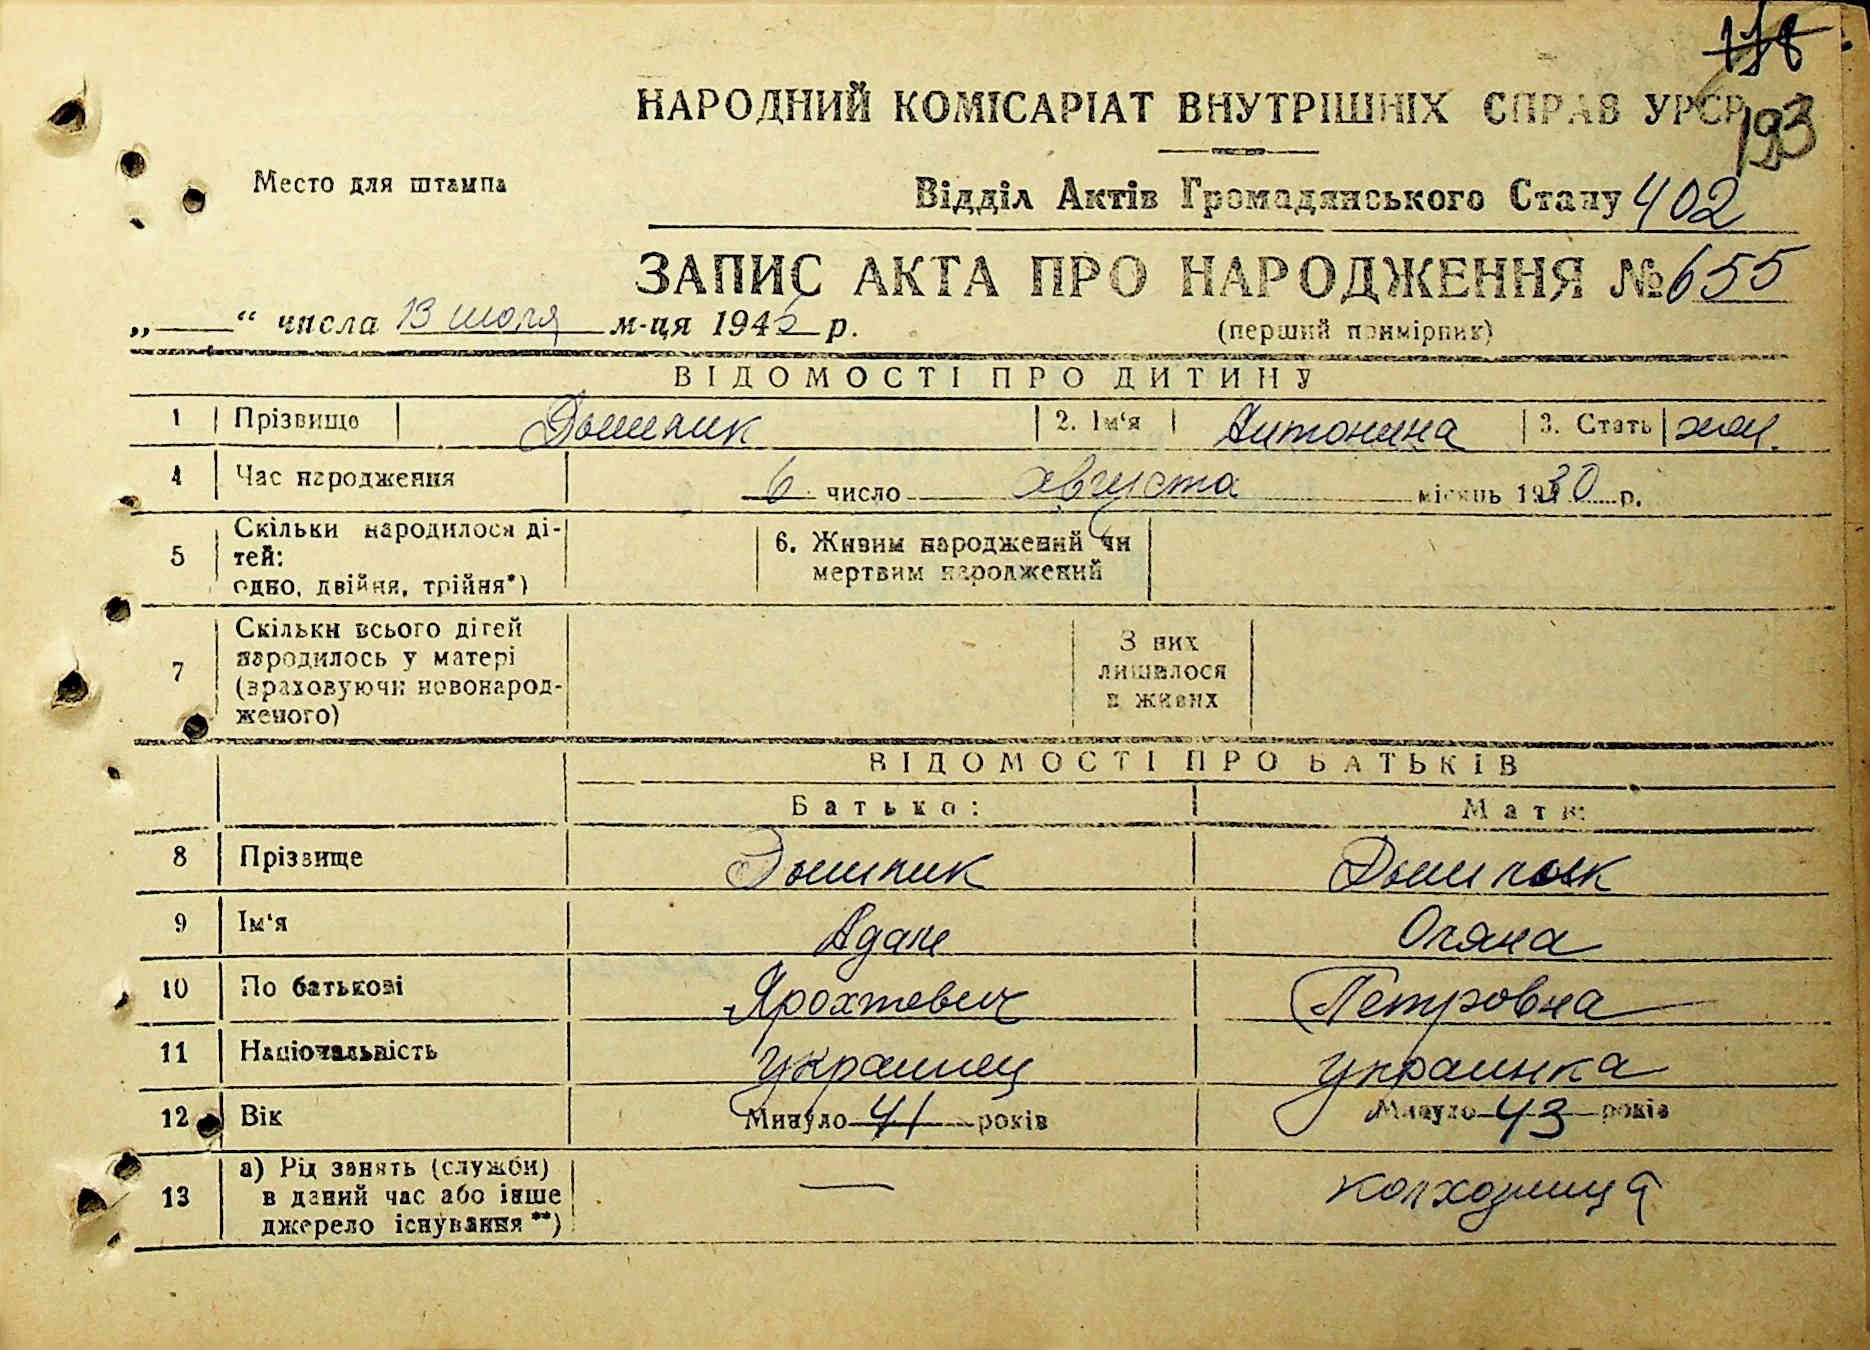 118
193
НАРОДНИЙ КОМІСАРІАТ ВНУТРІШНІХ СПРАВ УРСР
Место для штампа
Відділ Актів Громадянського Стану 402
ЗАПИС АКТА ПРО НАРОДЖЕННЯ № 655
„—“ числа 13 июля м-ця 1946 р.
(перший примірник)
ВІДОМОСТІ ПРО ДИТИНУ
1 Прізвище 2. Ім‘я Антонина 3. Стать жен.
4 Час народження 6 число августа місяць 1930 р.
5 Скільки народилося ді-
тей:
одно, двійня, трійня*)
6. Живим народжений чи
мертвим народжений
7 Скільки всього дітей
народилось у матері
(враховуючи новонарод-
женого)
З них
лишилося
в живих
ВІДОМОСТІ ПРО БАТЬКІВ
Батько: Мати:
8 Прізвище
9 Ім‘я Адам Оляна
10 По батькові Ярохтевич Петровна
11 Національність украинец украинка
12 Вік Минуло 41 років Минуло 43 років
13 а) Рід занять (служби)
в даний час або інше
джерело існування**)
— колхозница